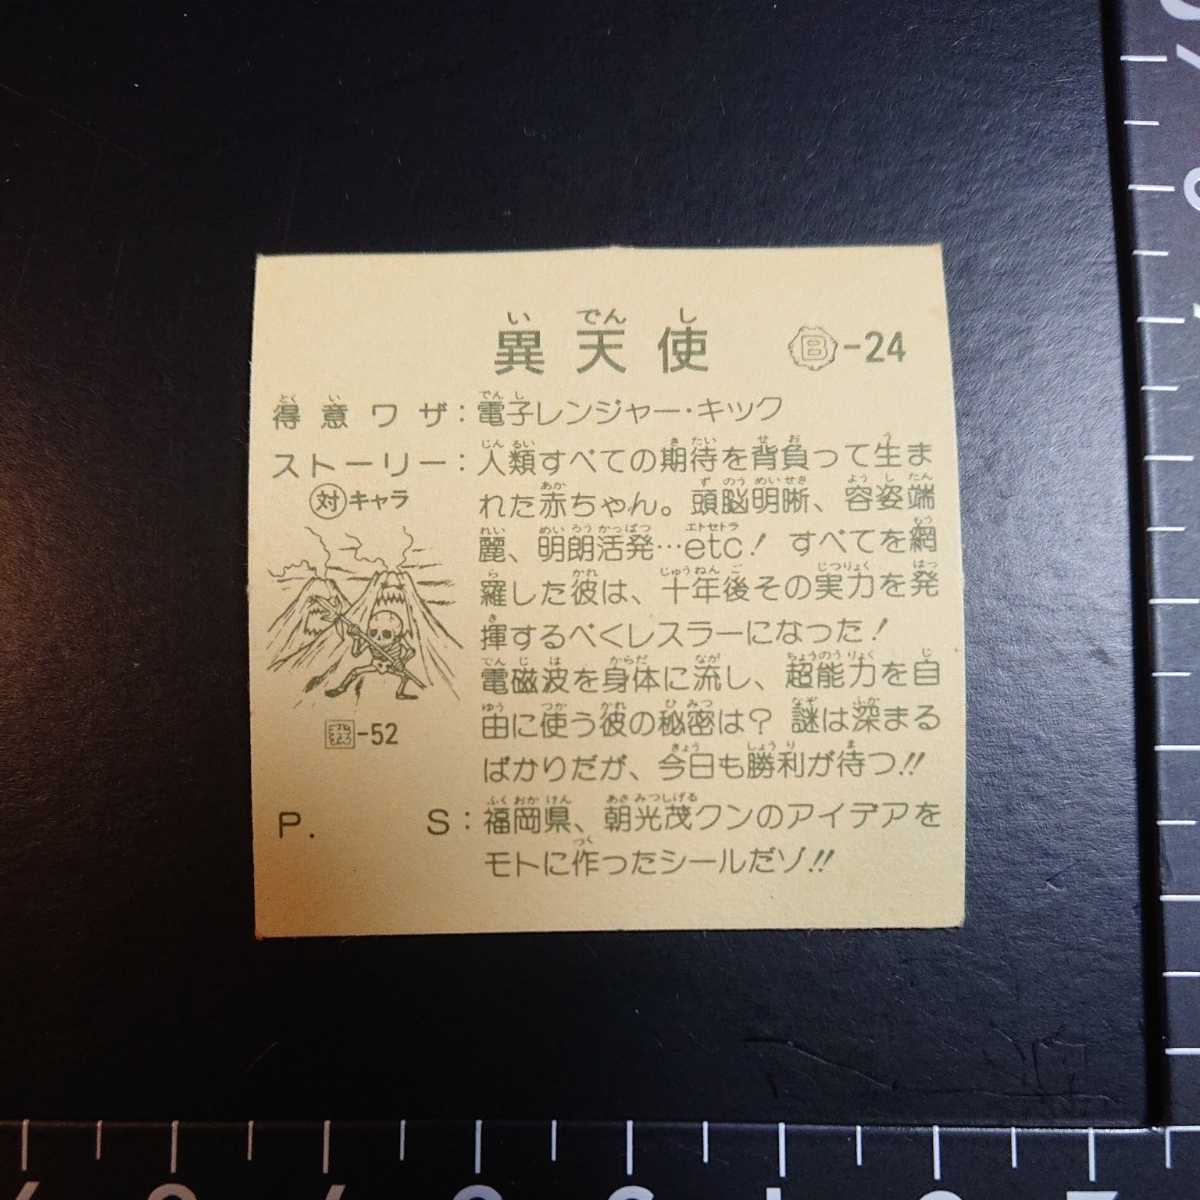 異天使 B-24
得意ワザ：電子レンジャー・キック
ストーリー：人類すべての期待を背負って生ま
れた赤ちゃん。頭脳明晰、容姿端
麗、明朗活発…etc！ すべてを網
羅した彼は、十年後その実力を発
揮するべくレスラーになった！
電磁波を身体に流し、超能力を自
由に使う彼の秘密は？ 謎は深まる
ばかりだが、今日も勝利が待つ!!
対キャラ
-52
P. S：福岡県、朝光茂クンのアイデアを
モトに作ったシールだゾ!!